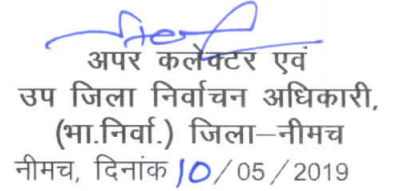 अपर कलेक्टर एवं
उप जिला निर्वाचन अधिकारी,
(भा.निर्वा.) जिला–नीमच
नीमच, दिनांक 10/05/2019